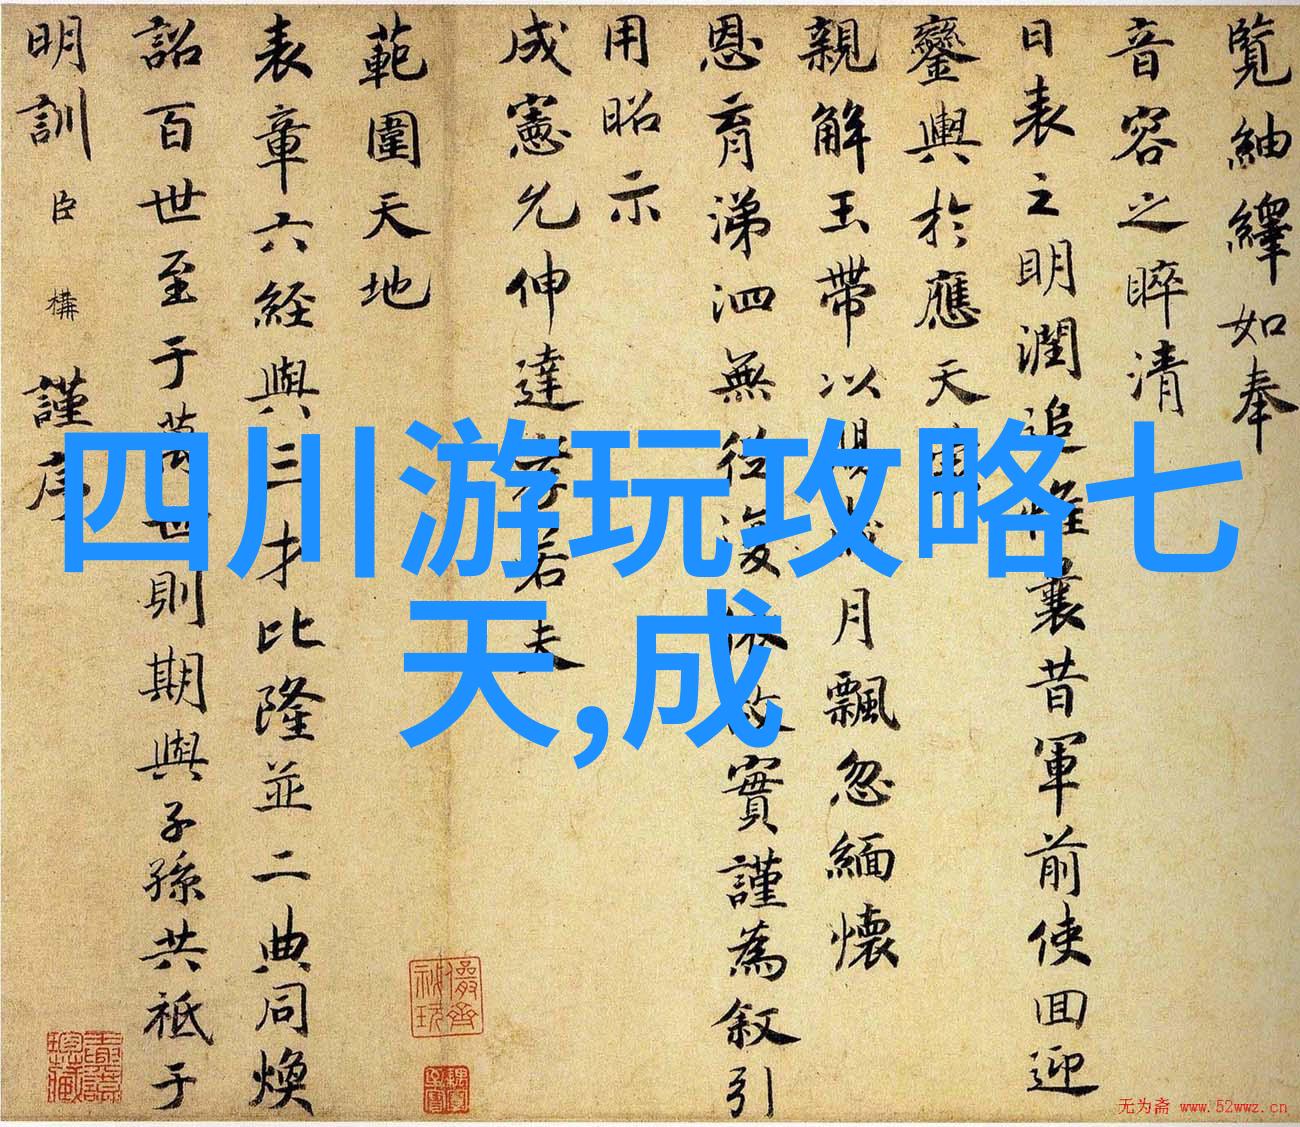 覽紬繹如奉
音容之睟清
日表之明潤追惟曩昔軍前使回迎
鑾輿於應天
親解玉帶以賜 月飄忽緬懷
恩育涕泗無從 實謹為叙引
用昭示
成憲允伸達孝若夫
範圍天地
表章六經與三才比隆並二典同煥
詔百世至于萬世則期與子孫共祗于
明訓臣構謹序
四川游玩攻略七
天,成
无为斋 www.52wwz.cn